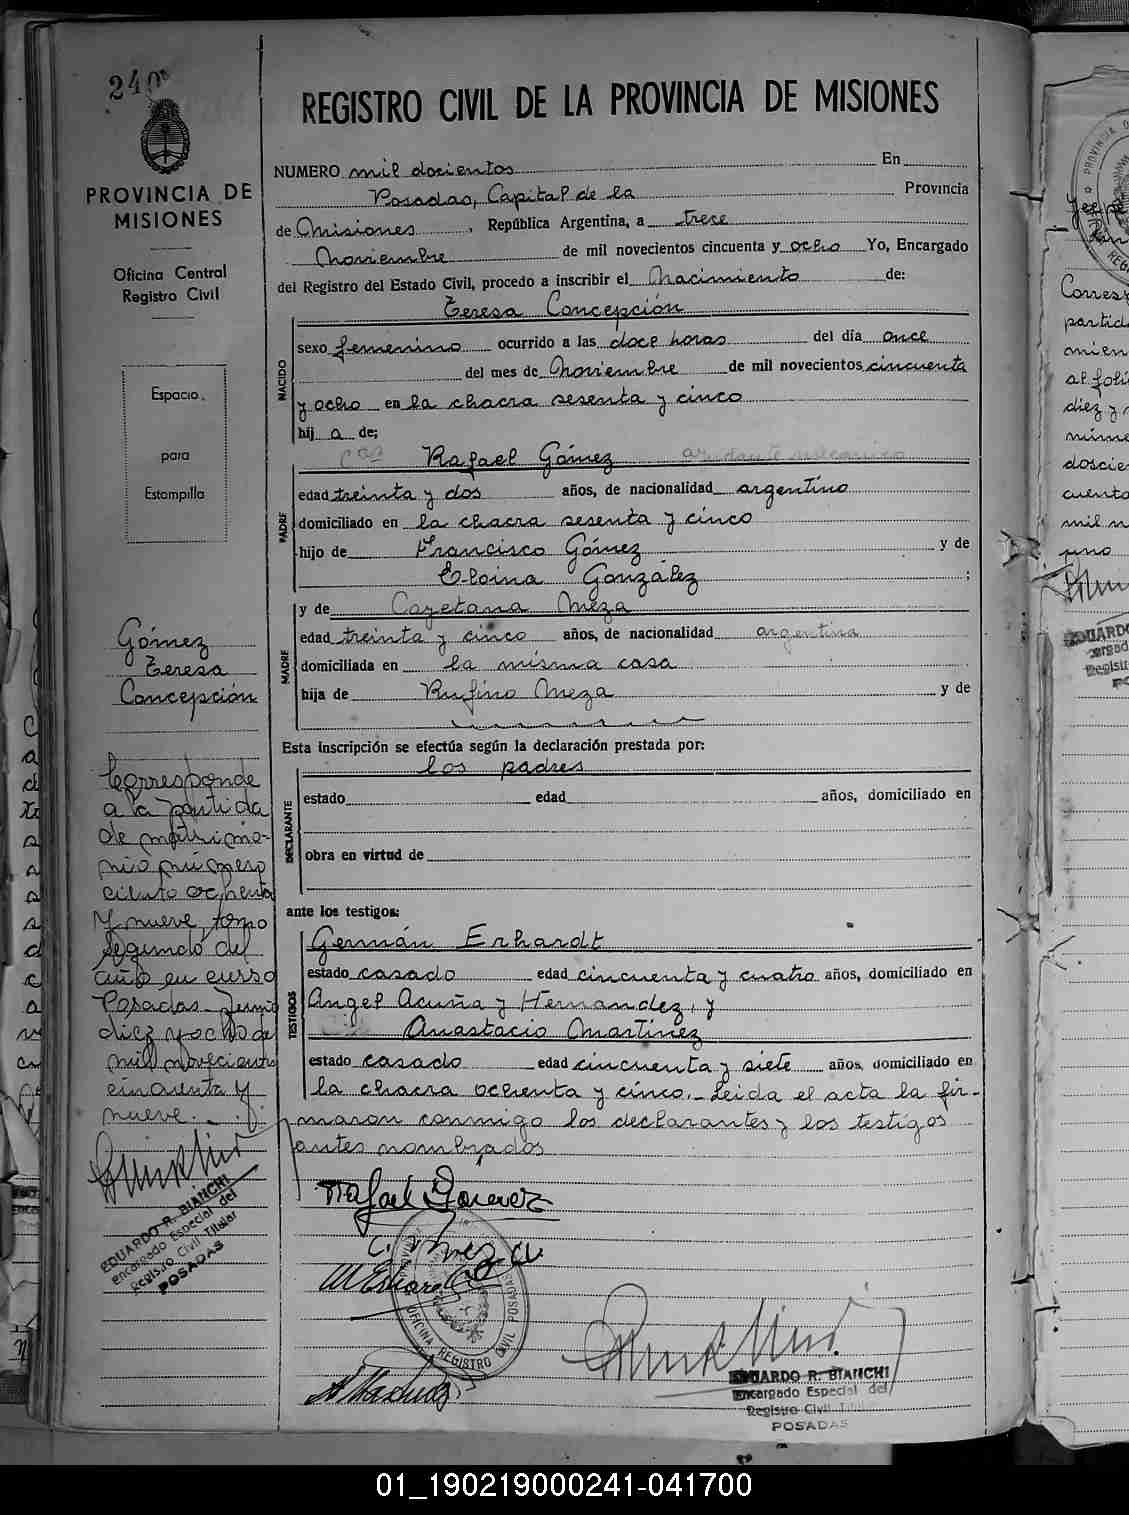 240
PROVINCIA DE
MISIONES
Oficina Central
Registro Civil
Espacio
para
Estampilla
Gómez
Teresa
Concepción
Corresponde
a la partida
de matrimo-
nio número
ciento ochenta
y nueve, tomo
segundo del
año en curso
Posadas. Junio
diez y ocho de
mil novecientos
cincuenta y
nueve.
EDUARDO R. BIANCHI
Encargado Especial del
Registro Civil Titular
POSADAS
REGISTRO CIVIL DE LA PROVINCIA DE MISIONES
NUMERO mil docientos En
Posadas, Capital de la Provincia
de Misiones, República Argentina, a trece
Noviembre de mil novecientos cincuenta y ocho Yo, Encargado
del Registro del Estado Civil, procedo a inscribir el Nacimiento de:
Teresa Concepción
NACIDO
sexo femenino ocurrido a las doce horas del día once
del mes de Noviembre de mil novecientos cincuenta
y ocho en la chacra sesenta y cinco
hij a de;
Rafael Gómez
PADRE
edad treinta y dos años, de nacionalidad argentino
domiciliado en la chacra sesenta y cinco
hijo de Francisco Gómez y de
Eloina González ;
y de Cayetana Meza
MADRE
edad treinta y cinco años, de nacionalidad argentina
domiciliada en la misma casa
hija de Rufino Meza y de
Esta inscripción se efectúa según la declaración prestada por:
los padres
DECLARANTE
estado edad años, domiciliado en
obra en virtud de
ante los testigos:
TESTIGOS
Germán Erhardt
estado casado edad cincuenta y cuatro años, domiciliado en
Angel Acuña y Hernandez, y
Anastacio Martínez
estado casado edad cincuenta y siete años, domiciliado en
la chacra ochenta y cinco.- Leida el acta la fir-
maron conmigo los declarantes y los testigos
antes nombrados
Rafael Gomez
C. Meza
OFICINA REGISTRO CIVIL POSADAS
EDUARDO R. BIANCHI
Encargado Especial del
Registro Civil Titular
POSADAS
01_190219000241-041700